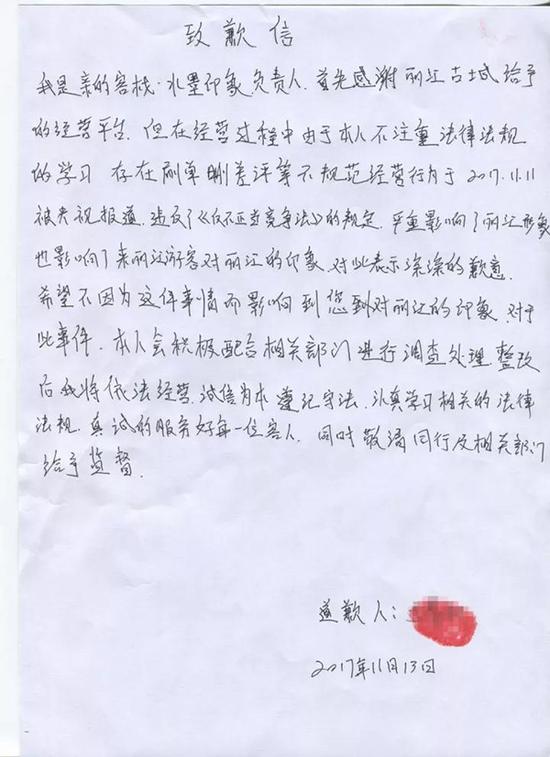 致歉信
我是亲的客栈·水墨印象负责人.首先感谢丽江古城给予
的经营平台.但在经营过程中由于本人不注重法律法规
的学习 存在刷单删差评等不规范经营行为于2017.11.11
被央视报道.违反了《反不正当竞争法》的规定.严重影响了丽江形象
也影响了来丽江游客对丽江的印象.对此表示深深的歉意.
希望不因为这件事情而影响到您到对丽江的印象.对于
此事件.本人会积极配合相关部门进行调查处理.整改
后我将依法经营.诚信为本 遵纪守法.认真学习相关的法律
法规.真诚的服务好每一位客人.同时敬请同行及相关部门
给予监督.
道歉人:
2017年11月13日